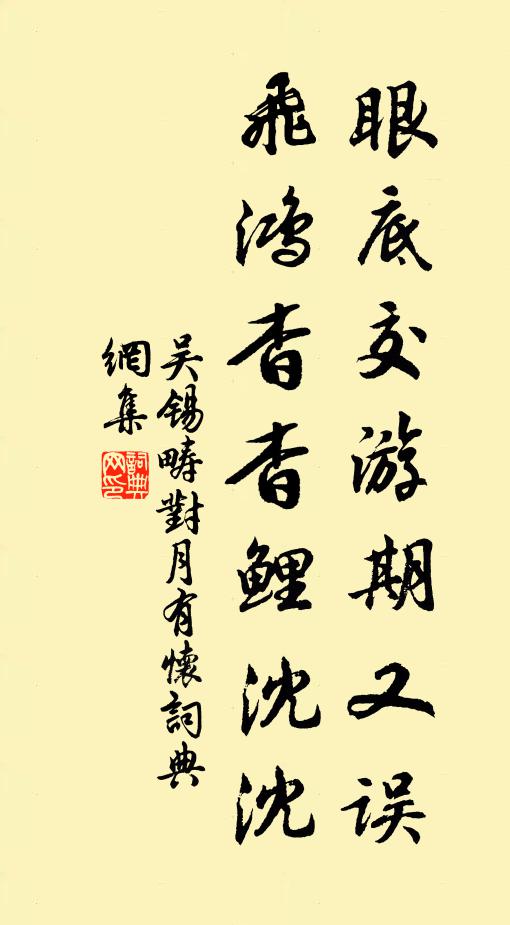 眼底交游期又误
飛鸿杳杳鲤沈沈
吴锡畴對月有懷詞典
網集
詞典网印